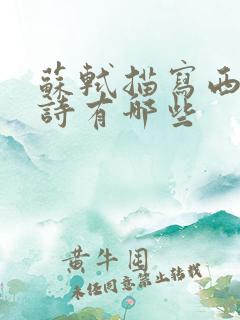 蘇軾描寫西
詩有哪些
黄牛国
未经同意禁止转载